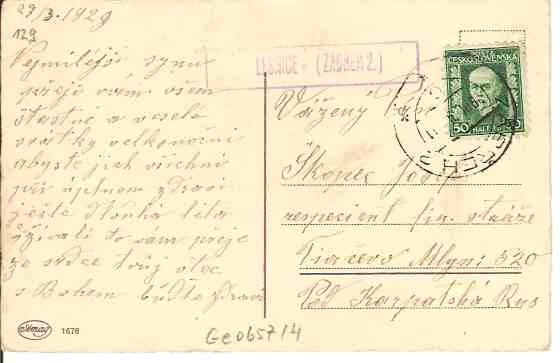 29/3. 1929
129
Nejmilejší synu
přeji vám všem
šťastné a veselé
svátky velkonoční
abyste jich všichni
při úplnem zdraví
ještě mnoha léta
užívali to vám přeje
ze srdce tvůj otec
s Bohem buďte zdraví
LESNICE - (ZÁBŘEH 2.)
ČESKOSLOVENSKA
50 HALÉŘŮ 50
Vážený
Škopec Josef
respicient fin. stráže
Tiačevo Mlyn: 520
Pod Karpatská Rus
1676
Geob57/4